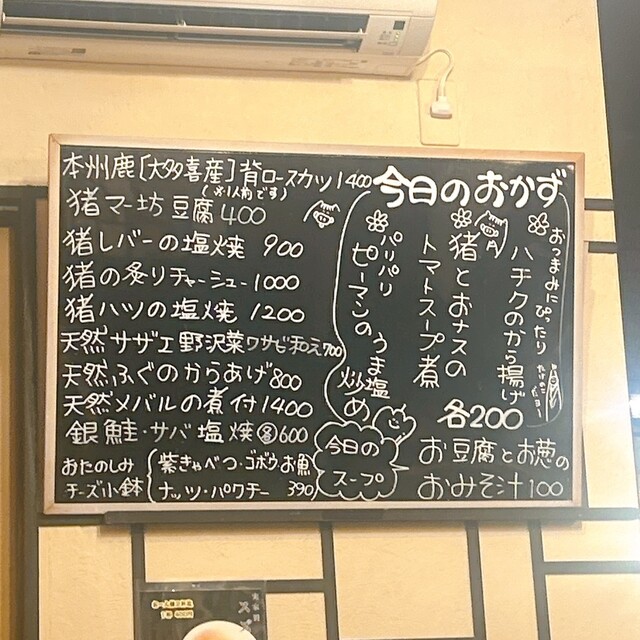 本州鹿[大多喜産]背ロースカツ1400
(※1人前です)
猪マー坊豆腐400
猪レバーの塩焼 900
猪の炙りチャーシュー1000
猪ハツの塩焼 1200
天然サザエ野沢菜ワサビ和え700
天然ふぐのからあげ800
天然メバルの煮付1400
銀鮭・サバ塩焼各600
おたのしみ
チーズ小鉢
紫きゃべつ・ゴボウ・お魚
ナッツ・パクチー 390
今日のおかず
おつまみにぴったり
ハチクのから揚げ
たけのこだヨー!
猪とおナスの
トマトスープ煮
パリパリ
ピーマンのうま塩炒め
各200
今日の
スープ
お豆腐とお葱の
おみそ汁100